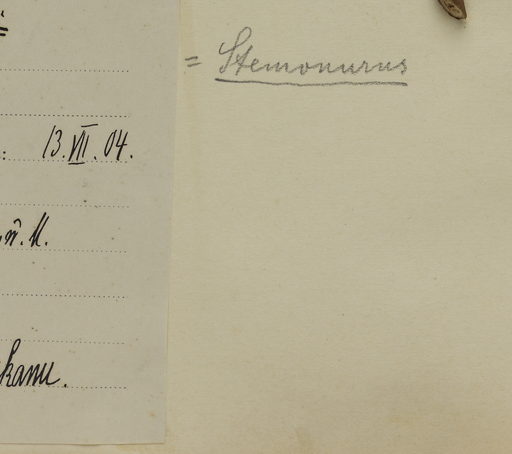 = Stemonurus
: 13.VII.04.
ü.M.
kanu.